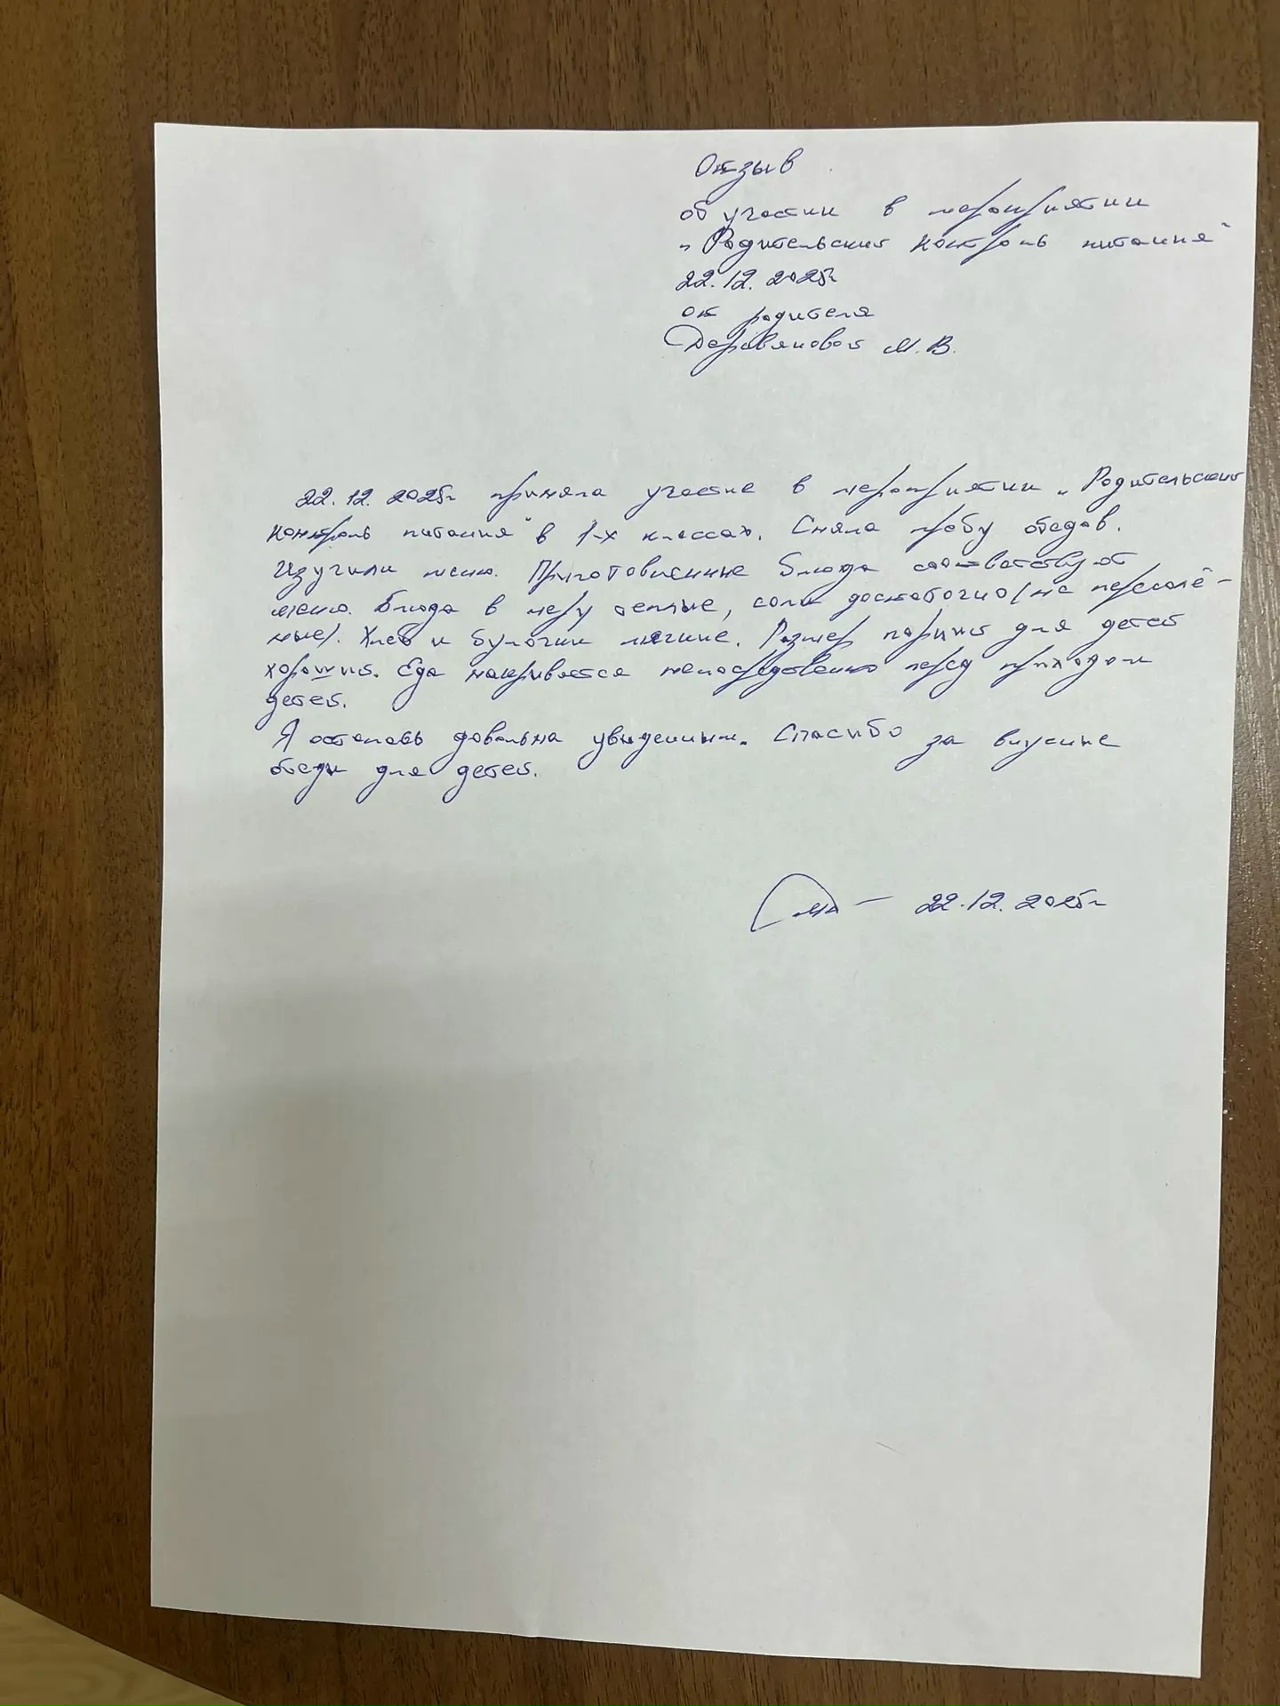 Отзыв
об участии в мероприятии
"Родительский контроль питания"
22.12.2025г
от родителя
М. В.
22.12.2025г приняла участие в мероприятии "Родительский
контроль питания" в 1-х классах. Сняла пробу обедов.
Изучили меню. Приготовленные блюда соответствуют
меню. Блюда в меру теплые, соли достаточно (не пересолё-
ные). Хлеб и булочки мягкие. Размер порций для детей
хороший. Еда накрывается непосредственно перед приходом
детей.
Я осталась довольна увиденным. Спасибо за вкусные
обеды для детей.
22.12.2025г